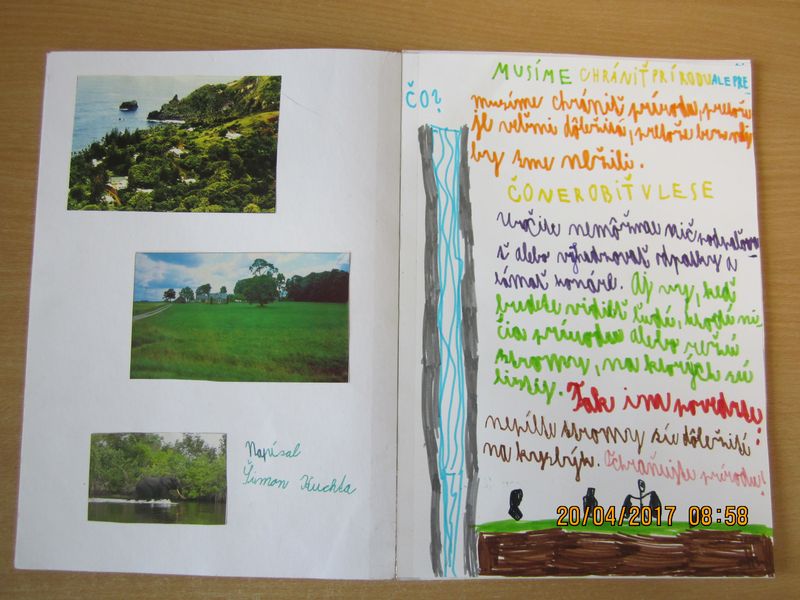 Napísal
Šimon Kuchka
MUSÍME CHRÁNIŤ PRÍRODU ALE PRE
ČO?
musíme chrániť prírodu, pretože
je veľmi dôležitá, pretože bez nej
by sme nežili.
ČO NEROBIŤ V LESE
Určite nemôžme nič podpaľova
ť alebo vyhadzovať odpadky a
lámať konáre. Aj vy, keď
budete vidieť ľudí, ktorí ni-
čia prírodu alebo režú
stromy, na ktorých sú
listy. Tak im povedzte
nepíľte stromy sú dôležité
na kyslík. Ochraňujte prírodu!
20/04/2017 08:58